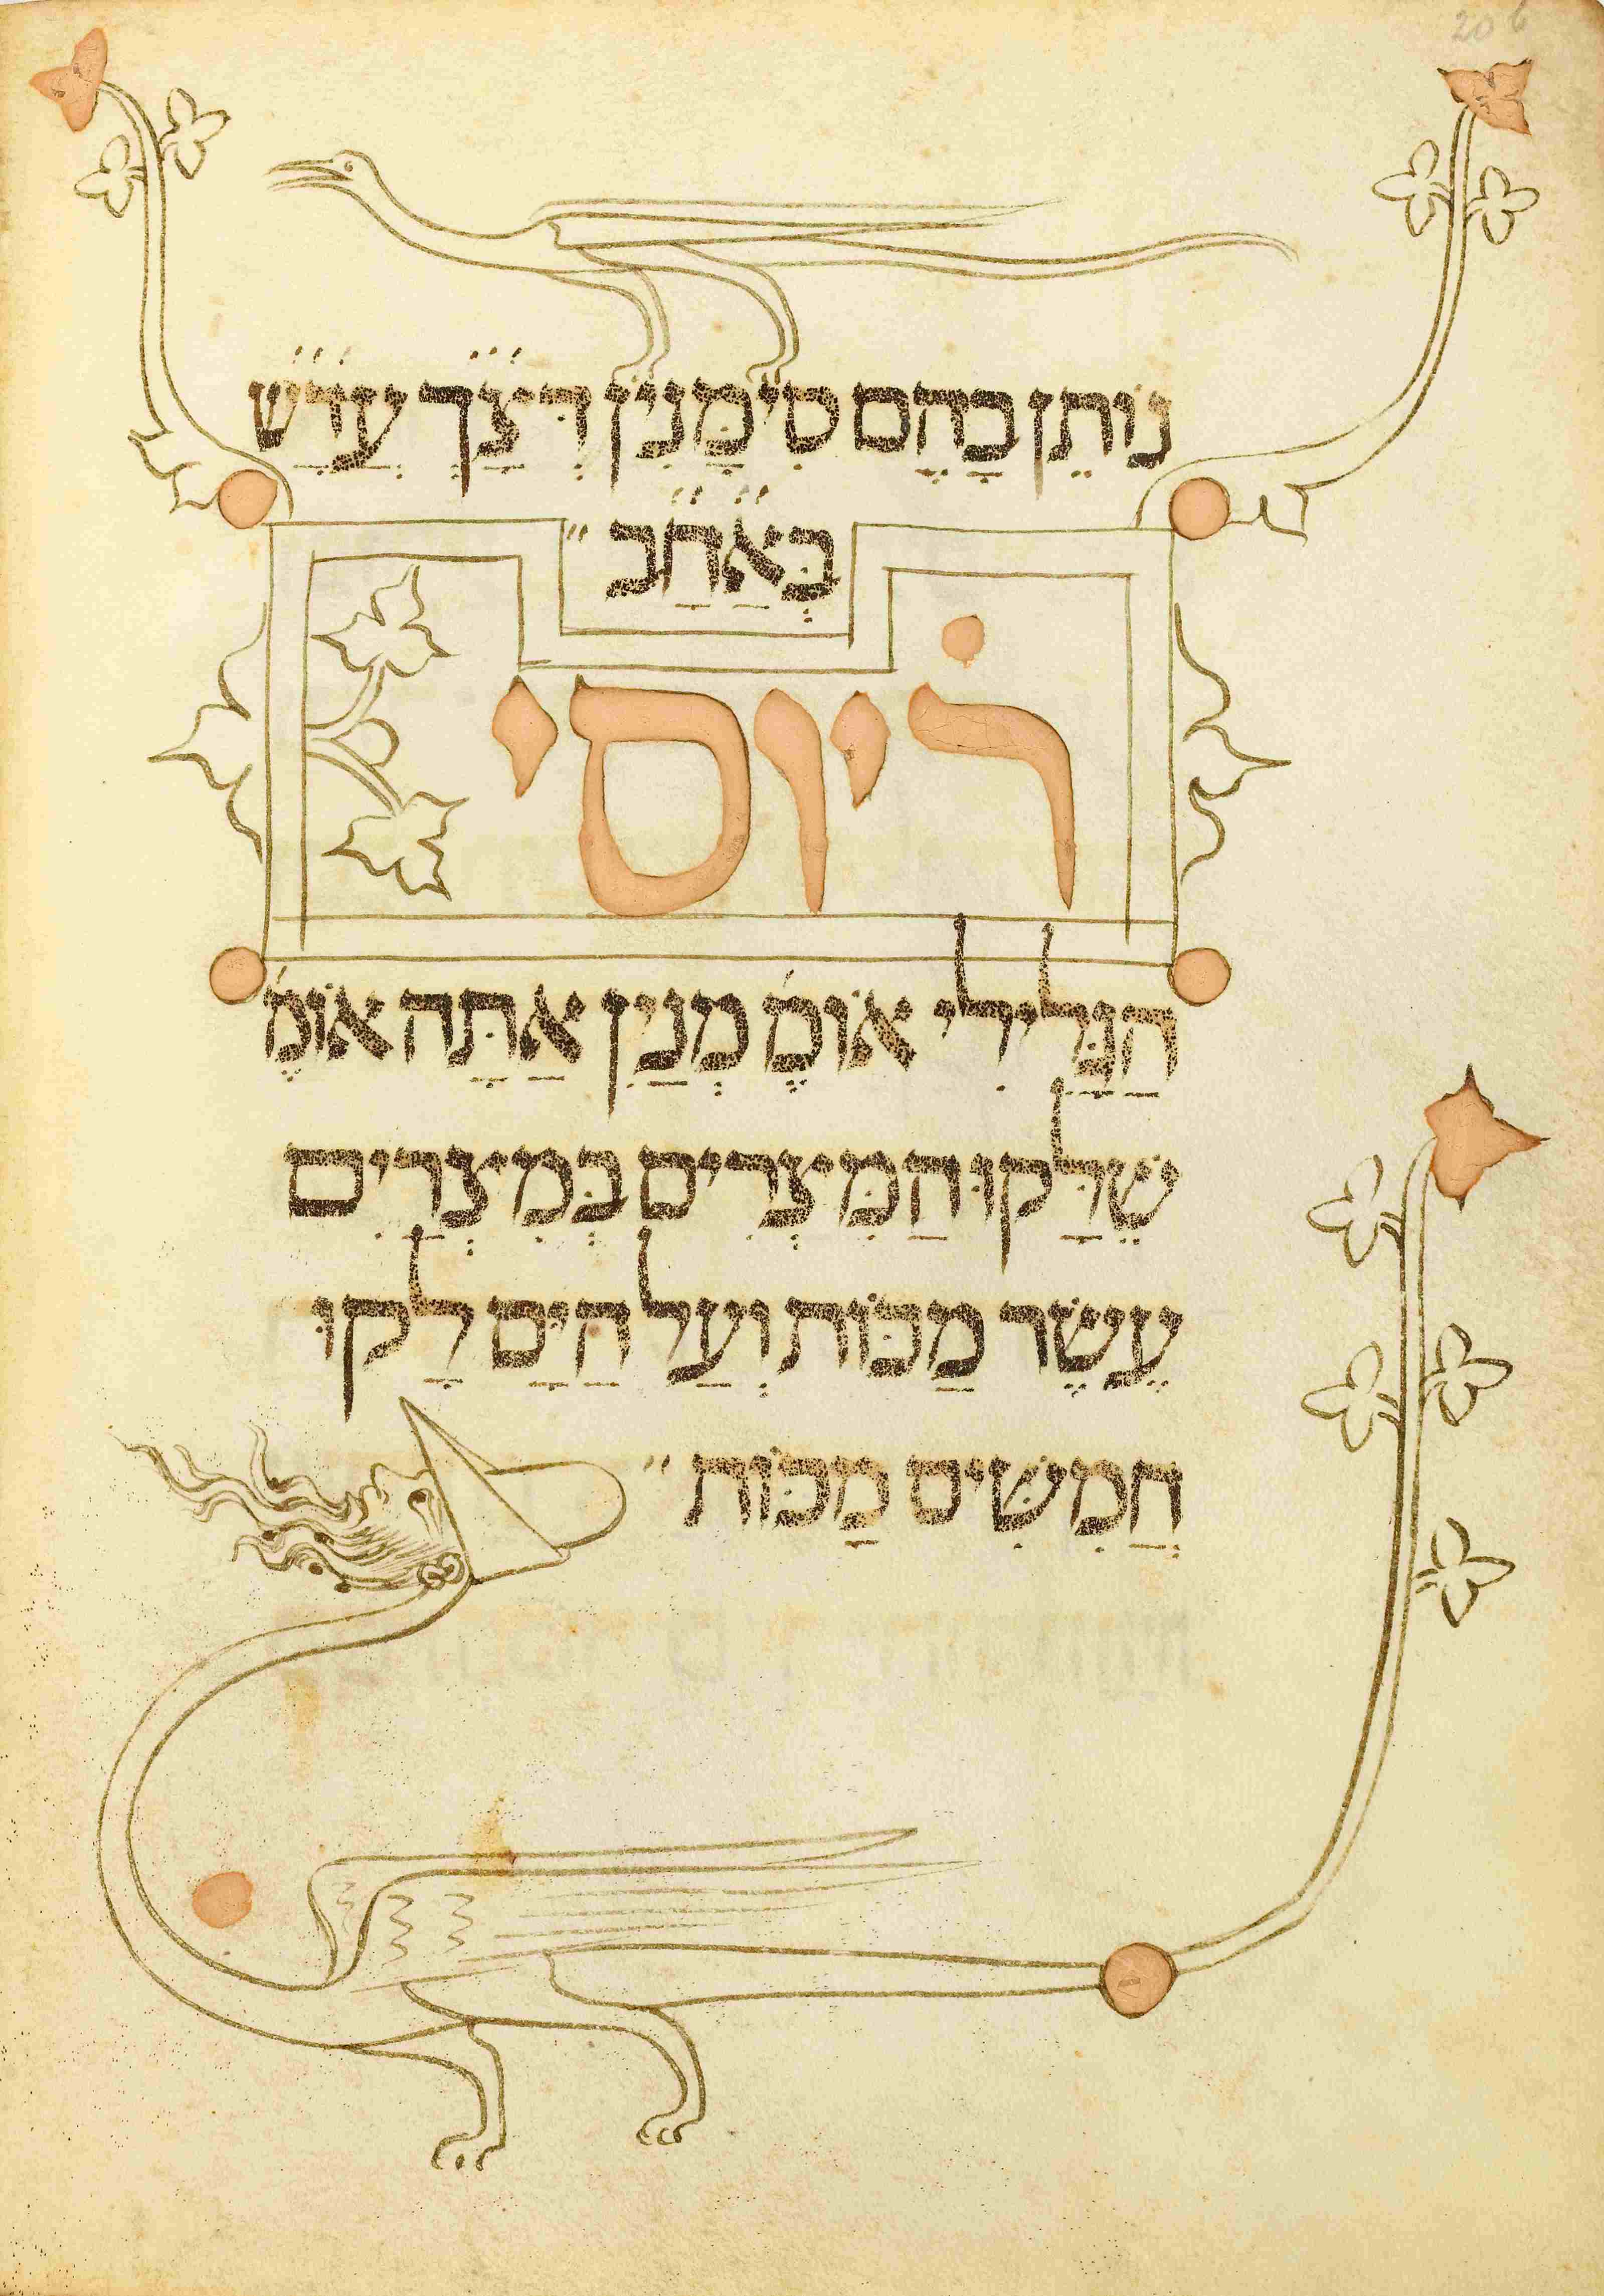 20 b
נוֹתֵן בָּהֶם סִימָּנִין דְּצַךְ עֲדַשׁ
בְּאַחַב ״
ר׳ יוסי
הַגַּלִילִי אוֹמֶ׳ מְנַיִן אַתָּה אוֹמֶ׳
שֶׁלָּקוּ הַמִּצְרִים בְּמִצְרַיִם
עֶשֶׂר מַכּוֹת וְעַל הַיָּם לָקוּ
חֲמִשִּׁים מַכּוֹת ״